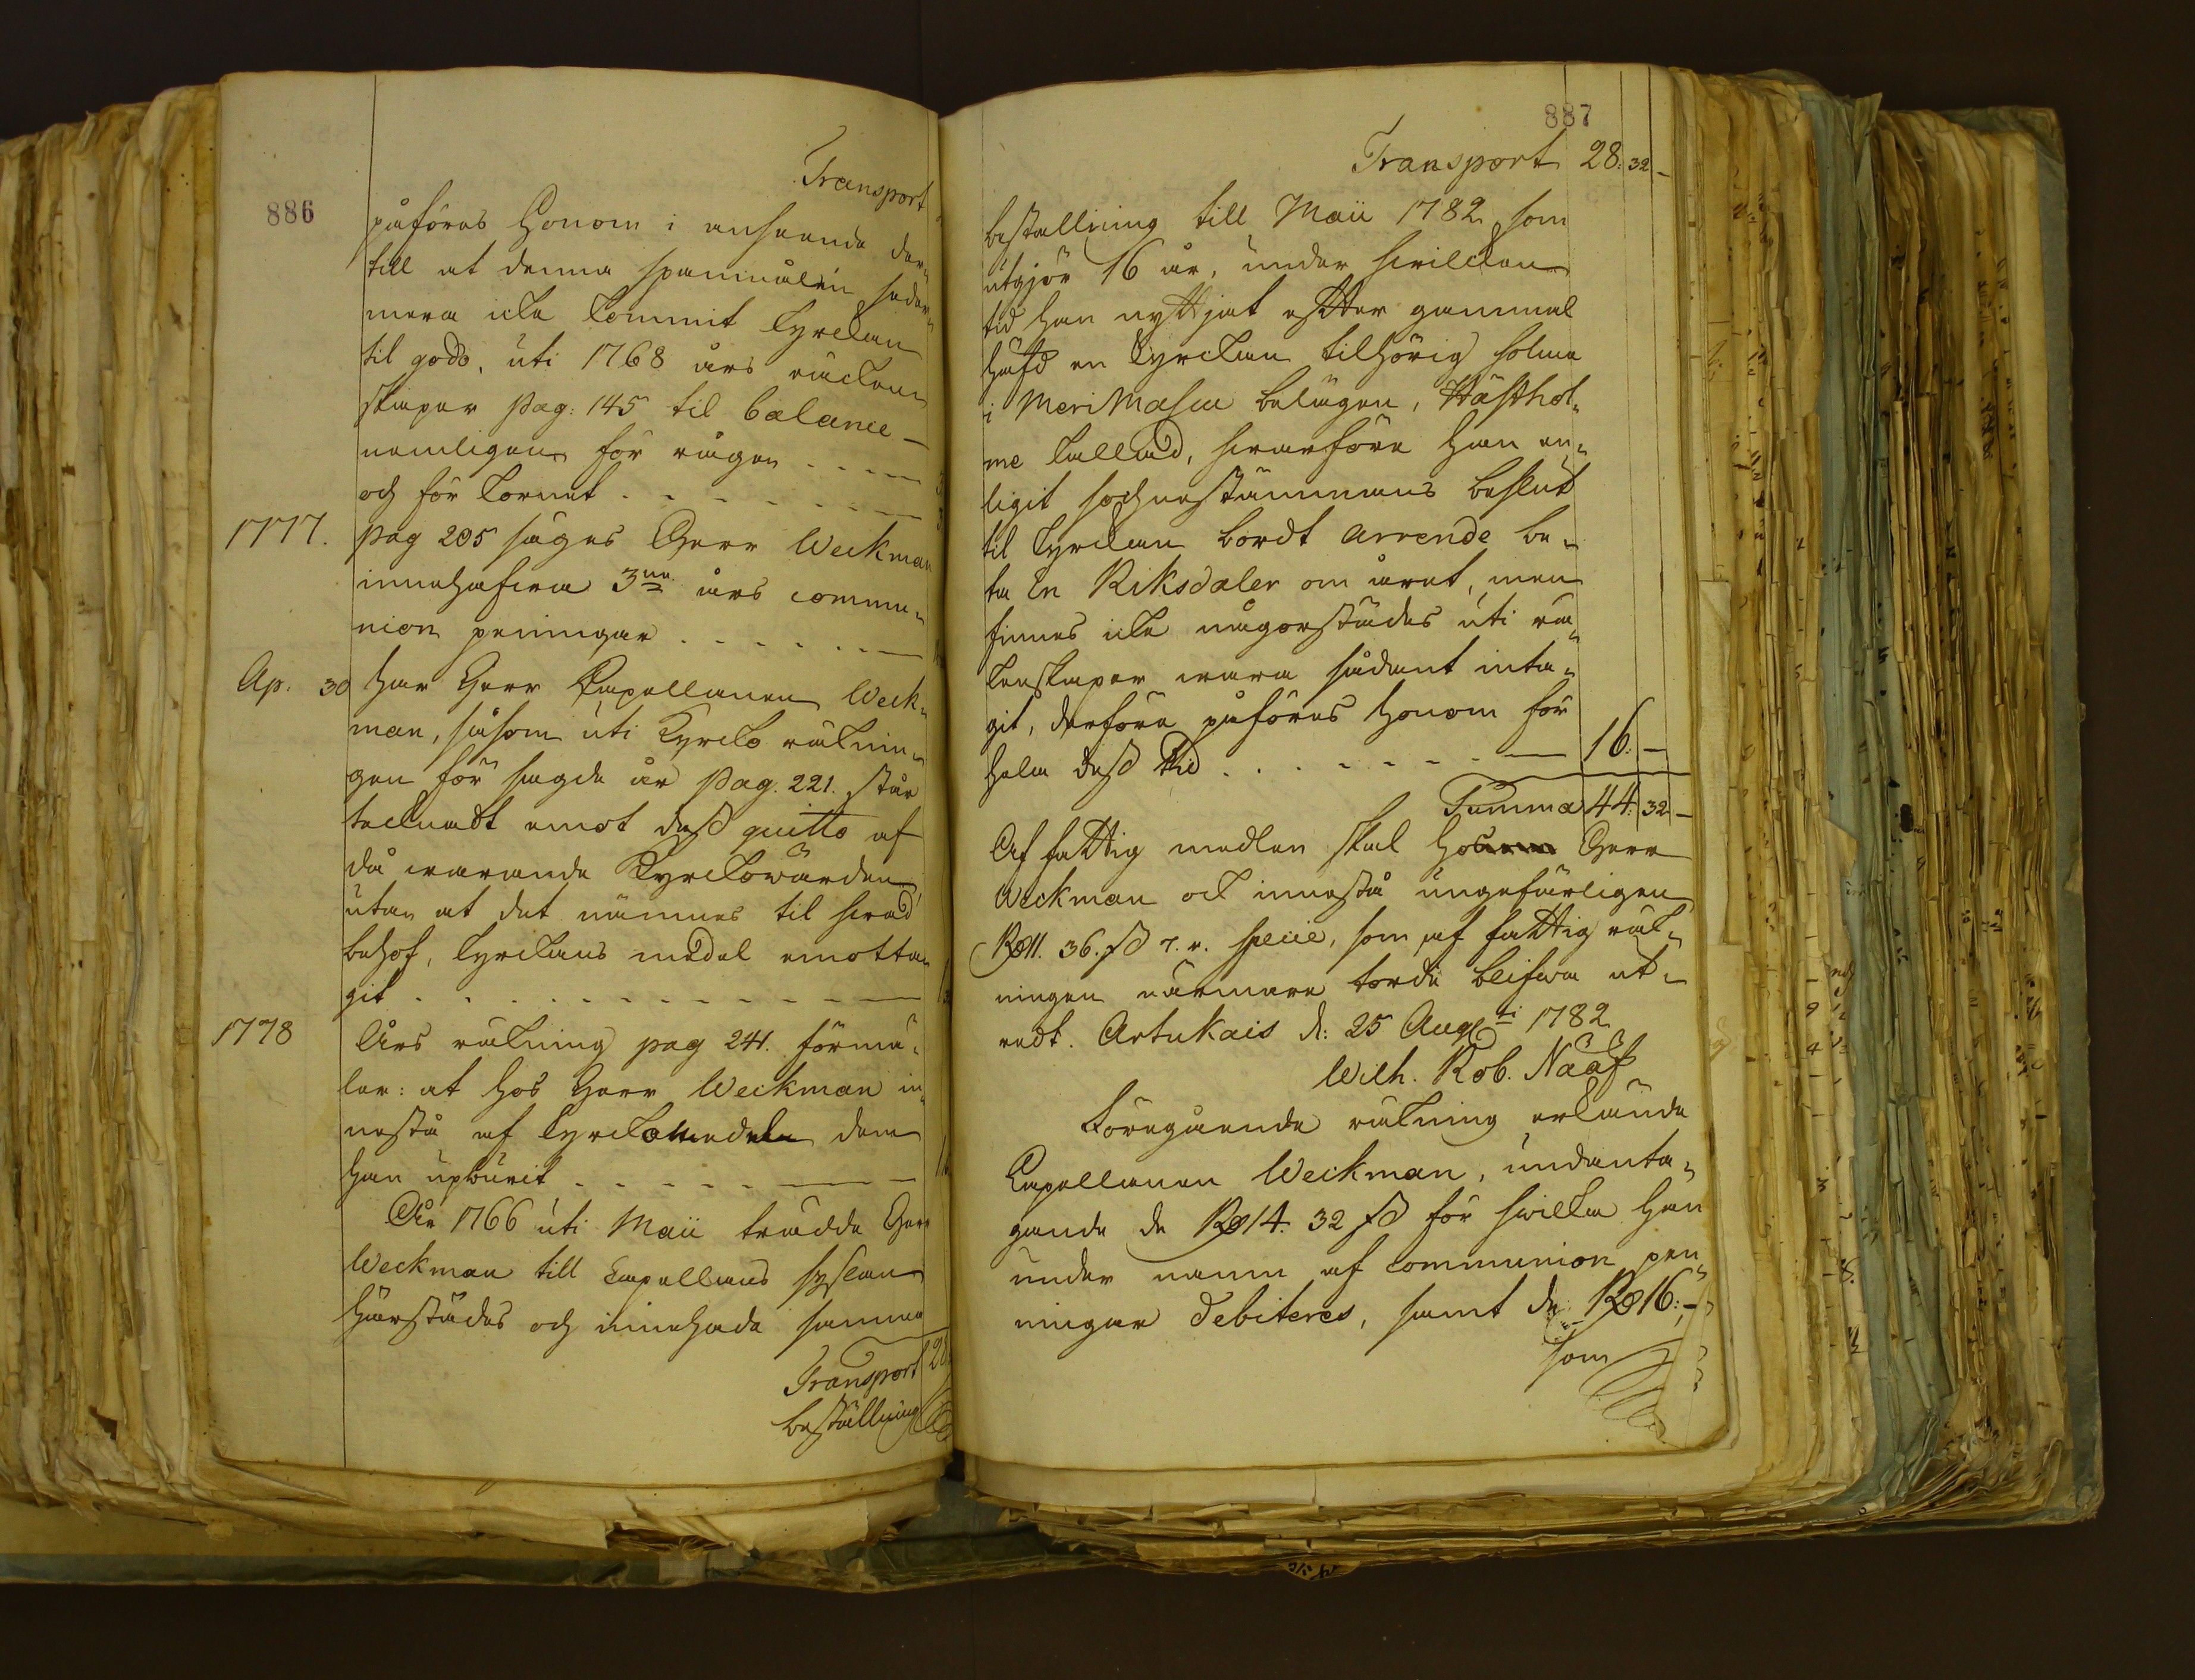 886
Transport
påföres Honom i anseende der¬
till at denna spannmålen seder¬
mera icke kommit kyrckan
til godo, uti 1768 års räcken¬
skaper pag: 145 til balance —
nemligen för rågen
och för kornet
1777.
pag 205 säges Herr Weckman
innehafwa 3ne års commu¬
nion peningar
Ap. 30
har Herr Capellanen Weck¬
man, såsom uti Kyrcko räknin¬
gen för sagde år pag. 221. står
tecknadt emot dess quitto af
då warande Kyrckowärden
utan at det nämnes til hwad
behof, kyrckans medel emotta¬
git
1778
Års räkning pag 241. förmä¬
ler: at hos Herr Weckman in¬
nestå af kyrckomedeln dem
han upburit
År 1766 uti Maii trädde Herr
Weckman till Capellans syslan
härstädes och innehade samma
Transport 28
beställning
887
Transport 28: 32 —
beställning till Maii 1782 som
utgjör 16 år, under hwilcken
tid han nyttjat efter gammal
häfd en kyrckan tilhörig holme
i Merimasku belägen, Hästhol¬
me kallad, hwarföre han en¬
ligit sochnestämmans beslut
til kyrckan bordt arrende be¬
ta En Riksdaler om året, men
finnes icke någorstädes uti rä¬
kenskaper wara sådant inta¬
git, derföre påföres honom för
hela dess tid 16: —
Summa 44: 32 —
Af fattig medlen skal hos Herr
Weckman ock innestå ungefärligen
Rd 11. 36. sd r. specie, som af fattig räk¬
ningen närmare torde blifwa ut¬
redt. Artukais d: 25 Augti 1782
Wilh. Rob. Nääf
Föregående räkning erkände
Capellanen Weckman, undanta¬
gande de Rd 14. 32 sd för hwilka han
under namn af communion pen¬
ningar debiteres, samt de Rd 16: —
som